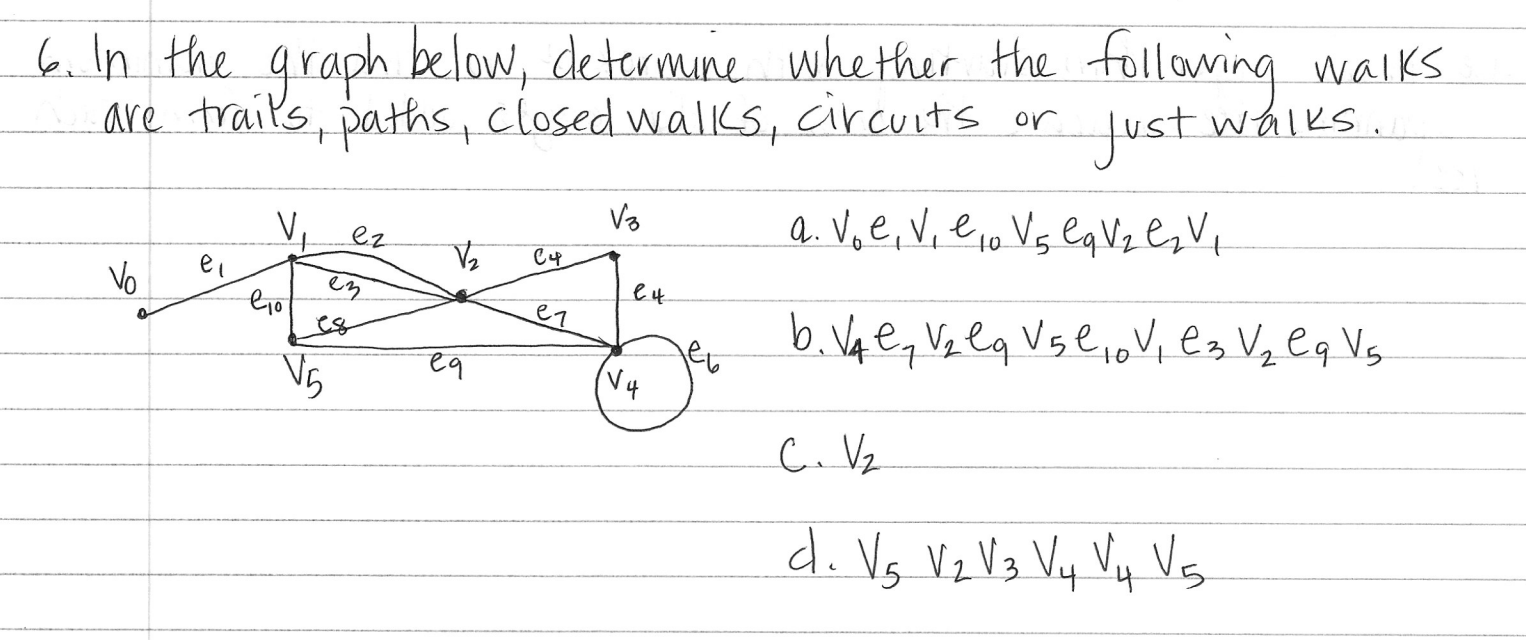 6. In the graph below, determine whether the following walks
are trails, paths, closed walks, circuits or just walks.
V0 e1 V1 e10 e2 e3 V2 e8 V5 e9 e4 V3 e4 e7 V4 e6
a. V0 e1 V1 e10 V5 e9 V2 e2 V1
b. V4 e7 V2 e9 V5 e10 V1 e3 V2 e9 V5
C. V2
d. V5 V2 V3 V4 V4 V5